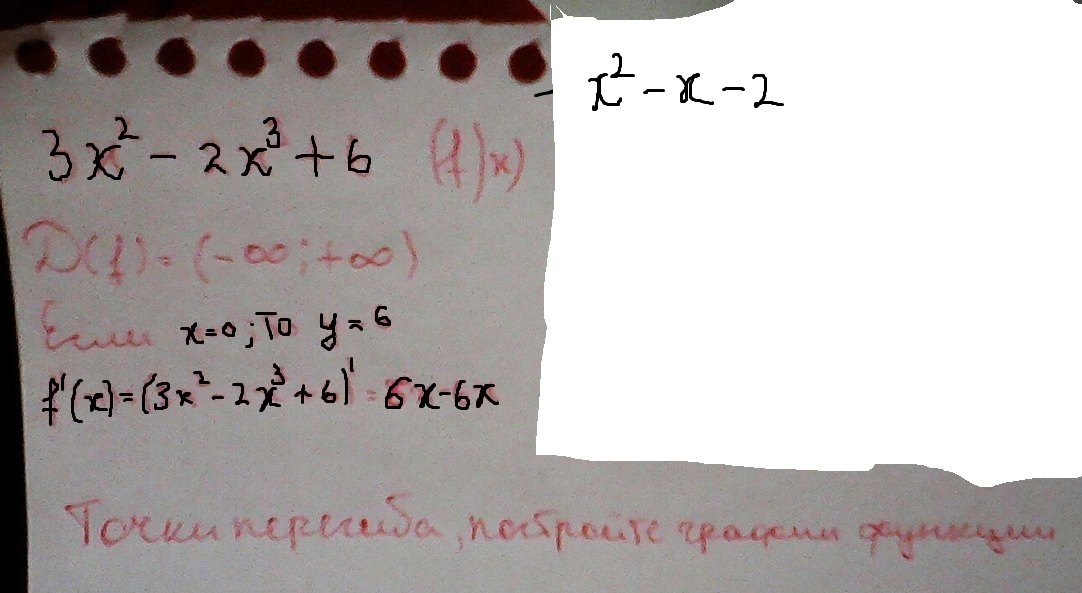 3x² - 2x³ + 6 (f)x)
x² - x - 2
D(f) = (-∞; +∞)
Если x=0; то y = 6
f'(x) = (3x² - 2x³ + 6)' = 6x-6x
Точки перегиба, постройте графики функции